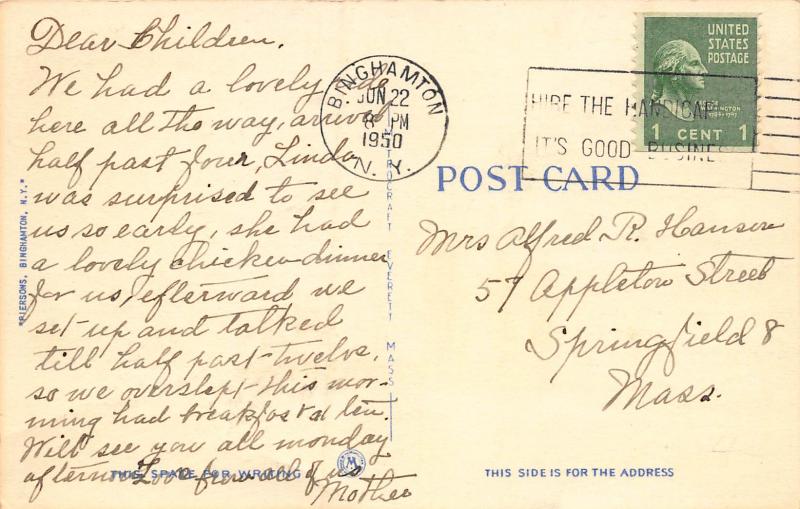 Dear Children.
We had a lovely ride
here all the way, arrived
half past four, Linda
was surprised to see
us so early, she had
a lovely chicken-dinner
for us, efterward we
set up and talked
till half past-twelve,
so we overslept this mor-
ning had breakfost at ten.
Will see you all monday
afternoon Love from all of us
Mother
THIS SPACE FOR WRITING
"PIERSONS, BINGHAMTON, N.Y."
METROCRAFT EVERETT MASS
M
BINGHAMTON
JUN 22
8 PM
1950
N. Y.
HIRE THE HANDICAP
IT'S GOOD BUSINES
UNITED
STATES
POSTAGE
WASHINGTON
1 CENT 1
POST CARD
Mrs Alfred R. Hanson
57 Appleton Street
Springfield 8
Mass.
THIS SIDE IS FOR THE ADDRESS